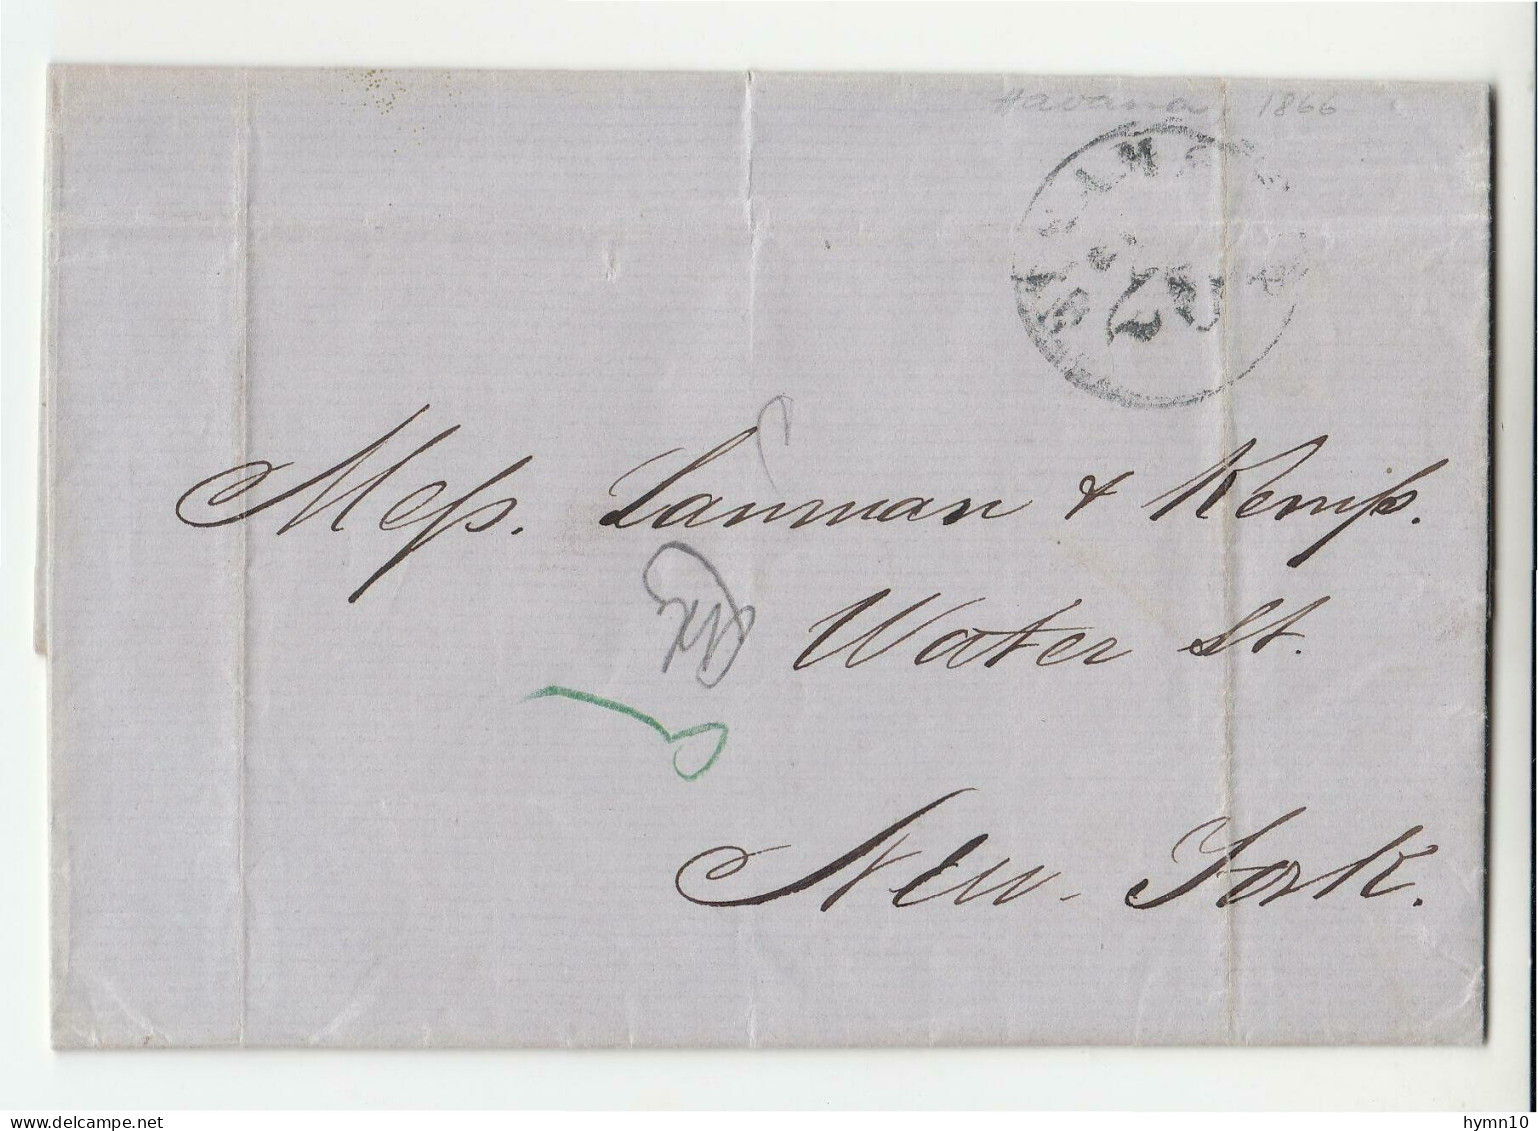 Havana. 1866
STEAMSHIP
20
Mess. Lanman & Kemp.
Water St.
New-York.
delcampe.net
hymn10